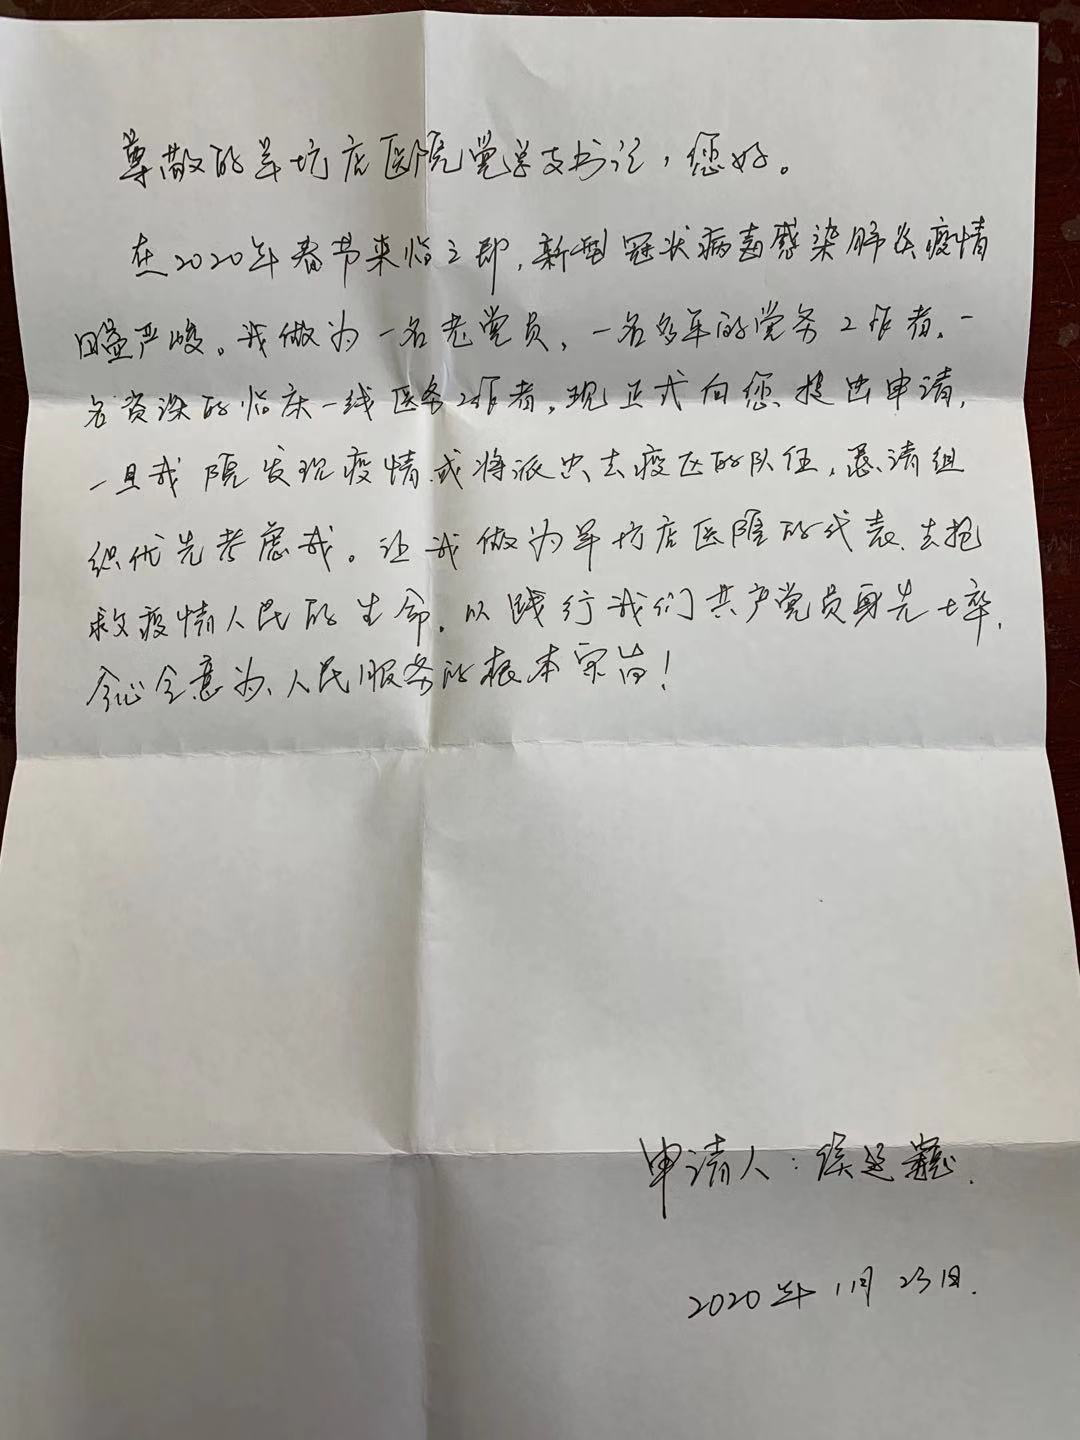 尊敬的羊坊店医院党总支书记，您好。
在2020年春节来临之即，新型冠状病毒感染肺炎疫情
日益严峻。我做为一名老党员，一名多年的党务工作者，一
名资深的临床一线医务工作者，现正式向您提出申请，
一旦我院发现疫情或将派出去疫区的队伍，恳请组
织优先考虑我。让我做为羊坊店医院的代表、去抢
救疫情人民的生命。以践行我们共产党员身先士卒，
全心全意为人民服务的根本宗旨！
申请人：侯延
2020年1月23日.